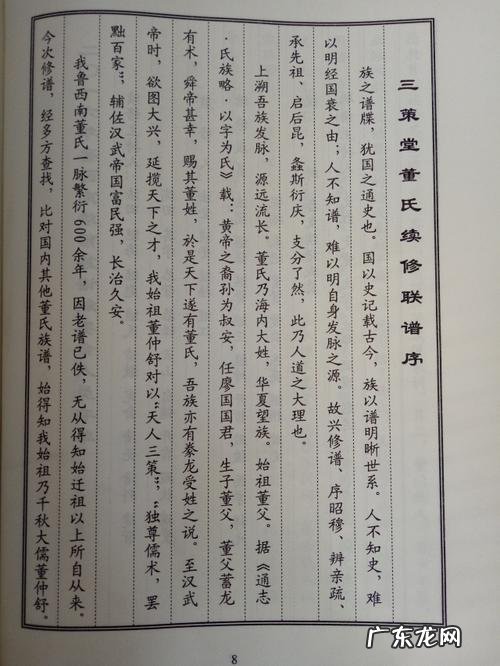 三策堂董氏续修联谱序
族之谱牒，犹国之通史也。国以史记载古今，族以谱明晰世系。人不知史，难
以明经国衰之由；人不知谱，难以明自身发脉之源。故兴修谱、序昭穆、辨亲疏、
承先祖、启后昆，螽斯衍庆，支分了然，此乃人道之大理也。
上溯吾族发脉，源远流长。董氏乃海内大姓，华夏望族。始祖董父。据《通志
·氏族略·以字为氏》载：黄帝之裔孙为叔安，任廖国国君，生子董父，董父蓄龙
有术，舜帝甚幸，赐其董姓，於是天下遂有董氏，吾族亦有豢龙受姓之说。至汉武
帝时，欲图大兴，延揽天下之才，我始祖董仲舒对以“天人三策”，“独尊儒术，罢
黜百家”，辅佐汉武帝国富民强，长治久安。
我鲁西南董氏一脉繁衍600余年，因老谱已佚，无从得知始迁祖以上所自从来。
今次修谱，经多方查找，比对国内其他董氏族谱，始得知我始祖乃千秋大儒董仲舒。
8
广东龙网